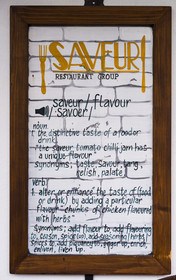 SAVEUR
RESTAURANT GROUP
saveur / flavour
/savoer/
noun
1 the distinctive taste of a food or
drink.
"the saveur tomato chilli jam has
a unique flavour"
synonyms; taste, savour, tang,
relish, palate
verb
1 alter or enhance the taste of (food
or drink) by adding a particular
flavour "chunks of chicken flavoured
with herbs"
synonyms; add flavour to, add flavouring
to, season, spice (up), add seasoning/herbs/
spices to, add piquancy to, ginger up, enrich,
enliven, liven up.